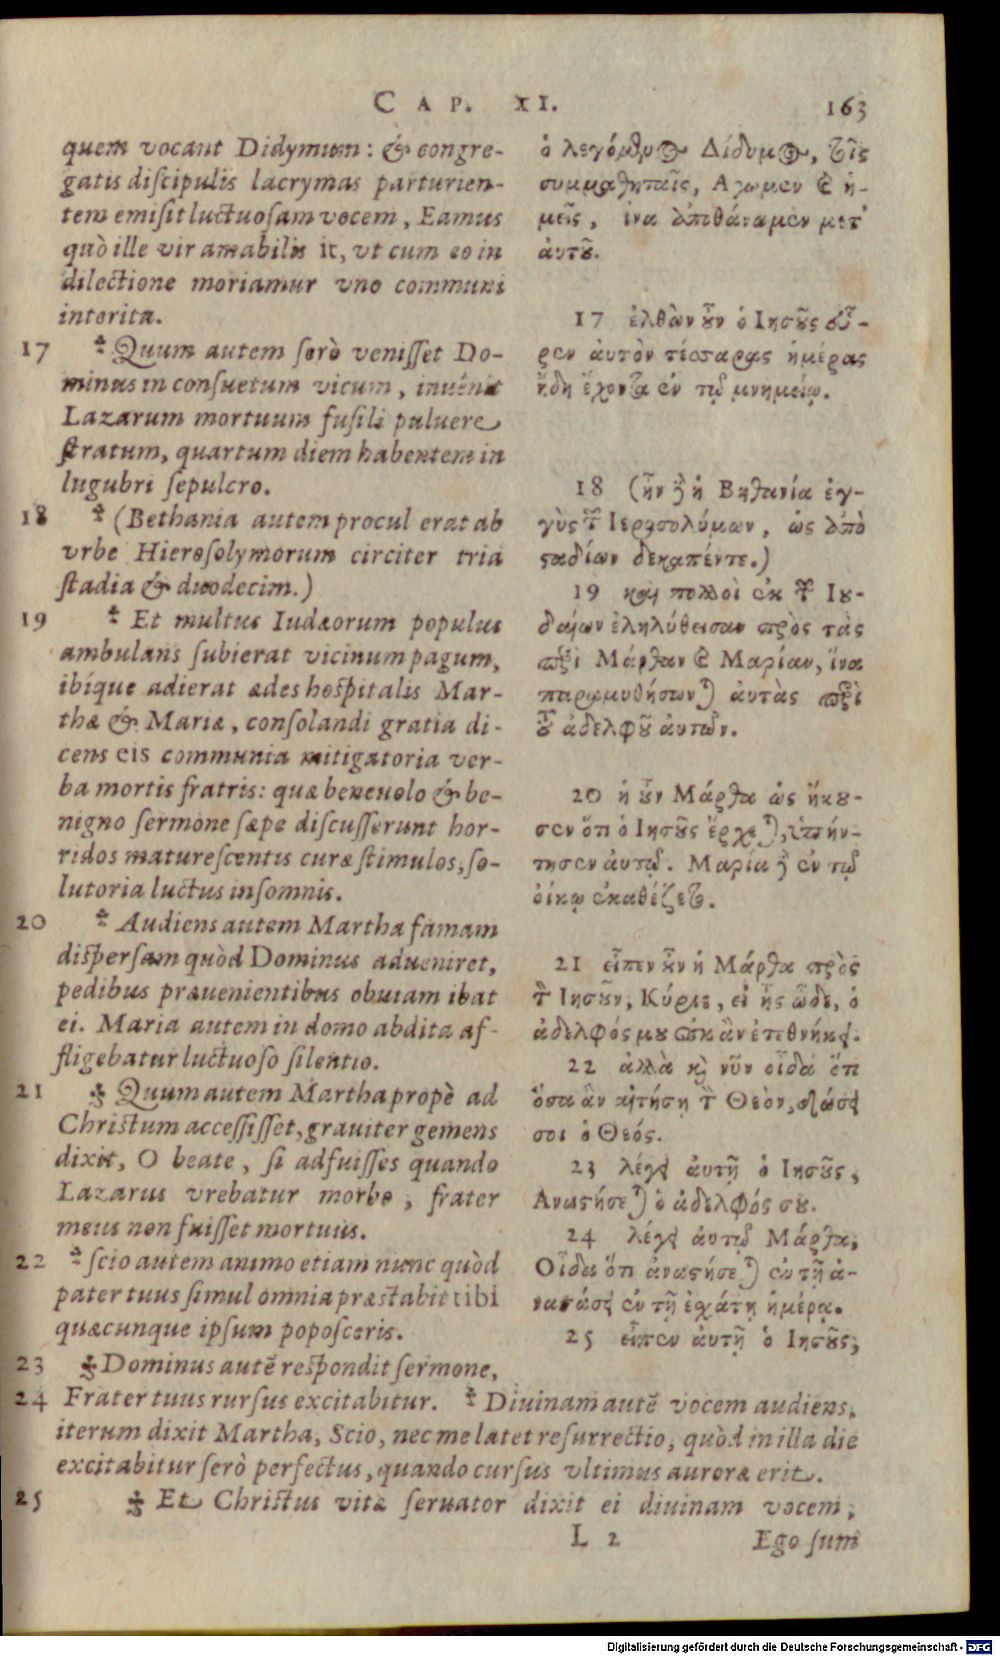 CAP. XI. 163
quem vocant Didymum: & congre-
gatis discipulis lacrymas parturien-
tem emisit luctuosam vocem, Eamus
quò ille vir amabilis it, vt cum eo in
dilectione moriamur vno communi
interitu.
17 Quum autem serò venisset Do-
minus in consuetum vicum, inuénit
Lazarum mortuum fusili puluere
stratum, quartum diem habentem in
lugubri sepulcro.
18 (Bethania autem procul erat ab
vrbe Hierosolymorum circiter tria
stadia & duodecim.)
19 Et multus Iudæorum populus
ambulans subierat vicinum pagum,
ibíque adierat ædes hospitalis Mar-
thæ & Mariæ, consolandi gratia di-
cens eis communia mitigatoria ver-
ba mortis fratris: quæ beneuolo & be-
nigno sermone sæpe discusserunt hor-
ridos maturescentis curæ stimulos, so-
lutoria luctus insomnis.
20 Audiens autem Martha famam
dispersam quòd Dominus adueniret,
pedibus præuenientibus obuiam ibat
ei. Maria autem in domo abdita af-
fligebatur luctuoso silentio.
21 Quum autem Martha propè ad
Christum accessisset, grauiter gemens
dixit, O beate, si adfuisses quando
Lazarus vrebatur morbo, frater
meus non fuisset mortuus.
22 scio autem animo etiam nunc quòd
pater tuus simul omnia præstabit tibi
quæcunque ipsum poposceris.
23 Dominus autẽ respondit sermone,
24 Frater tuus rursus excitabitur. Diuinam autẽ vocem audiens,
iterum dixit Martha, Scio, nec me latet resurrectio, quòd in illa die
excitabitur serò perfectus, quando cursus vltimus auroræ erit.
25 Et Christus vitæ seruator dixit ei diuinam vocem,
ὁ λεγόμενος Δίδυμος, τοῖς
συμμαθηταῖς, Αγωμεν καὶ ἡ-
μεῖς, ἵνα ἀποθάνωμεν μετ'
ἀυτοῦ.
17 ἐλθὼν οὖν ὁ Ιησοῦς εὗ-
ρεν ἀυτὸν τέσσαρας ἡμέρας
ἤδη ἔχοντα ἐν τῷ μνημείῳ.
18 (ἦν δὲ ἡ Βηθανία ἐγ-
γὺς τῶν Ιεροσολύμων, ὡς ἀπὸ
σταδίων δεκαπέντε.)
19 καὶ πολλοὶ ἐκ τῶν Ιου-
δαίων ἐληλύθεισαν πρὸς τὰς
περὶ Μάρθαν καὶ Μαρίαν, ἵνα
παραμυθήσωνται ἀυτὰς περὶ
τοῦ ἀδελφοῦ ἀυτῶν.
20 ἡ οὖν Μάρθα ὡς ἤκου-
σεν ὅτι ὁ Ιησοῦς ἔρχεται, ὑπήν-
τησεν ἀυτῷ. Μαρία δὲ ἐν τῷ
ὀίκῳ ἐκαθέζετο.
21 εἶπεν οὖν ἡ Μάρθα πρὸς
τὸν Ιησοῦν, Κύριε, εἰ ἦς ὧδε, ὁ
ἀδελφός μου οὐκ ἂν ἐτεθνήκει.
22 ἀλλὰ καὶ νῦν οἶδα ὅτι
ὅσα ἂν αἰτήσῃ τὸν Θεὸν, δώσει
σοι ὁ Θεός.
23 λέγει ἀυτῇ ὁ Ιησοῦς,
Αναστήσεται ὁ ἀδελφός σου.
24 λέγει ἀυτῷ Μάρθα,
Οἶδα ὅτι ἀναστήσεται ἐν τῇ ἀ-
ναστάσει ἐν τῇ ἐσχάτῃ ἡμέρᾳ.
25 εἶπεν ἀυτῇ ὁ Ιησοῦς,
L 2 Ego sum
Digitalisierung gefördert durch die Deutsche Forschungsgemeinschaft - DFG